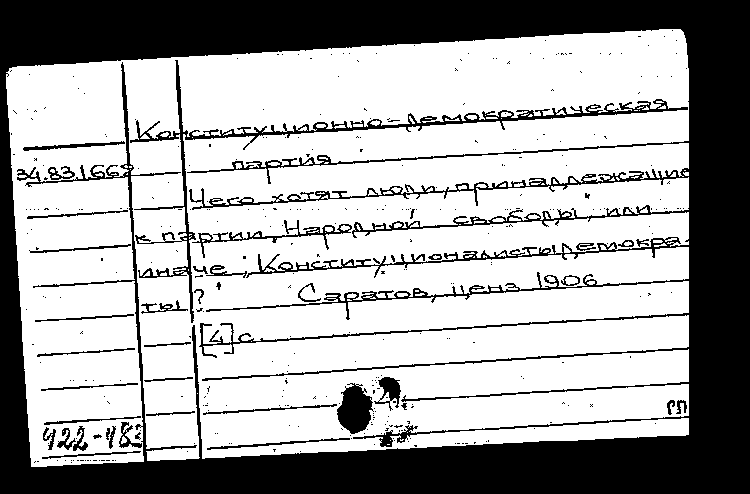 Конституционно-демократическая
партия
34.83.1669
Чего хотят люди, принадлежащие
к партии „Народной свободы", или
иначе „Конституционалисты демокра-
ты"?
Саратов, ценз 1906
[4] с.
922-483
РП